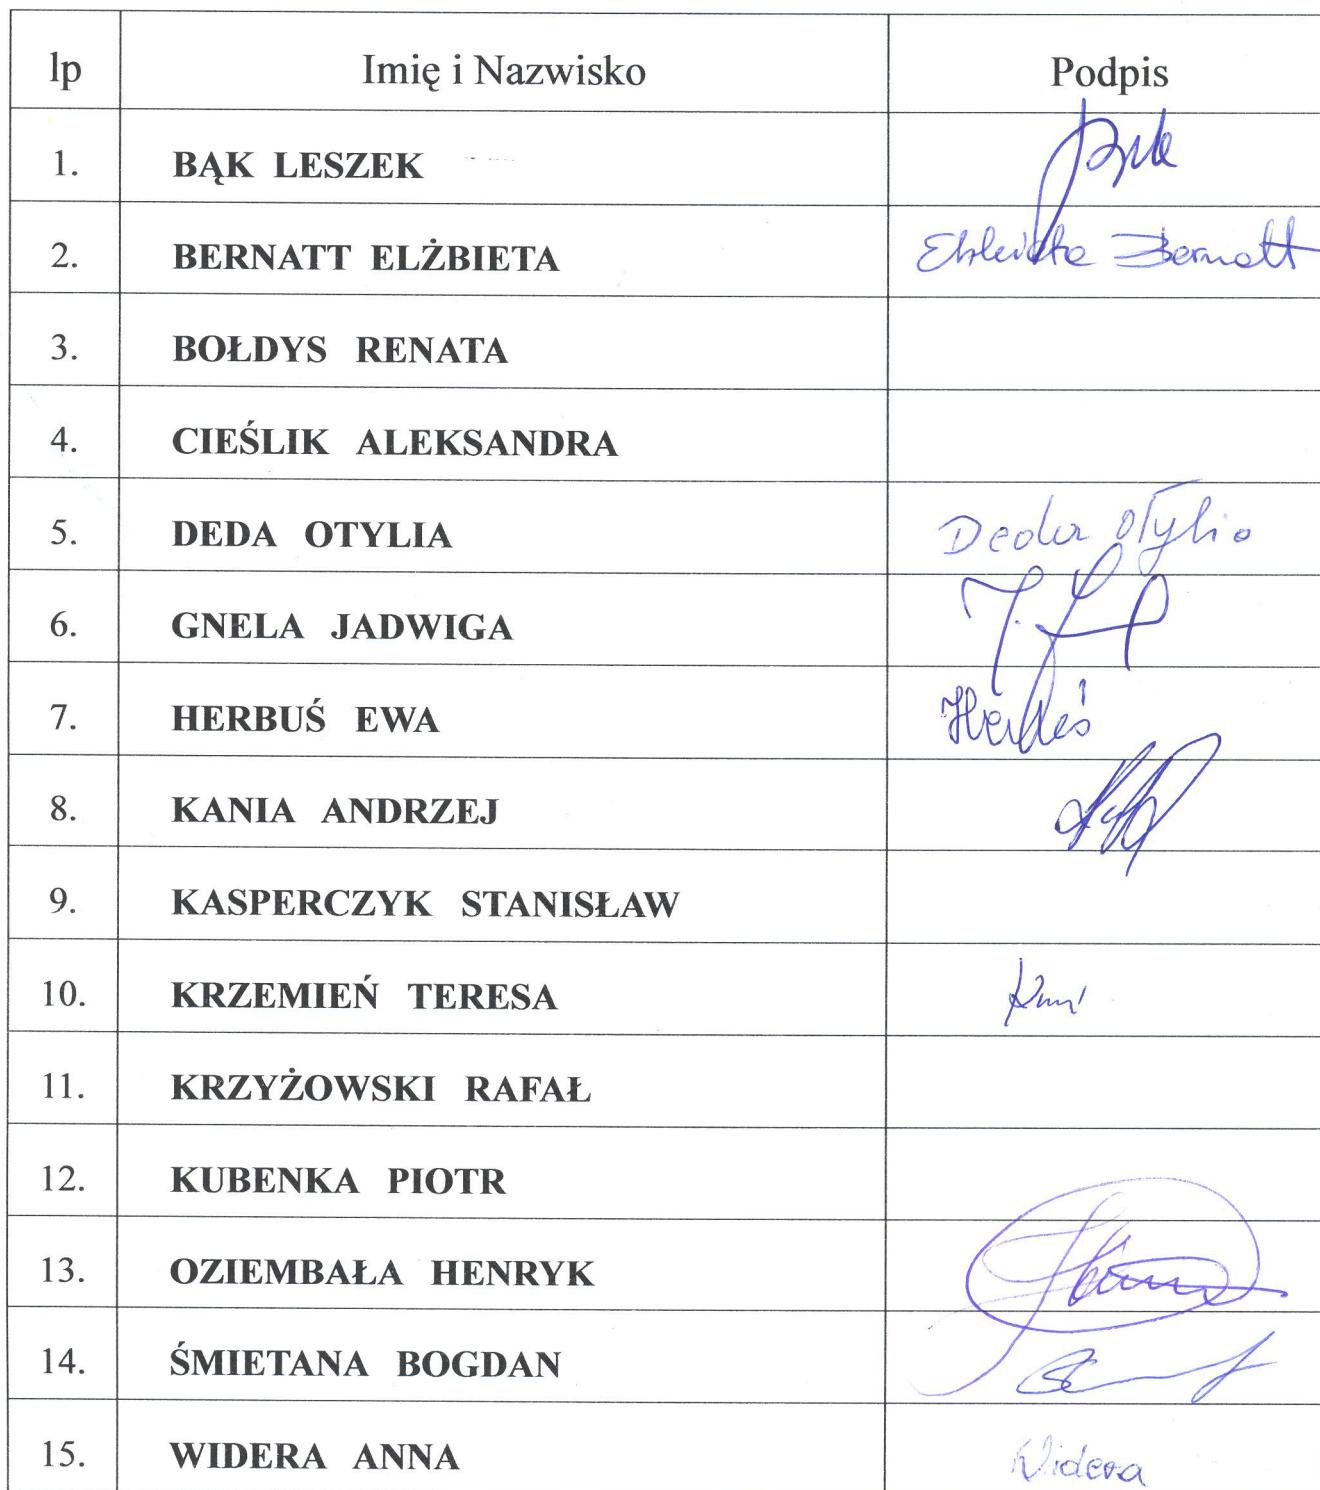 lp Imię i Nazwisko Podpis
1. BĄK LESZEK
2. BERNATT ELŻBIETA Elżbieta Bernatt
3. BOŁDYS RENATA
4. CIEŚLIK ALEKSANDRA
5. DEDA OTYLIA Deda Otylia
6. GNELA JADWIGA
7. HERBUŚ EWA Herbuś
8. KANIA ANDRZEJ
9. KASPERCZYK STANISŁAW
10. KRZEMIEŃ TERESA
11. KRZYŻOWSKI RAFAŁ
12. KUBENKA PIOTR
13. OZIEMBAŁA HENRYK
14. ŚMIETANA BOGDAN
15. WIDERA ANNA Widera